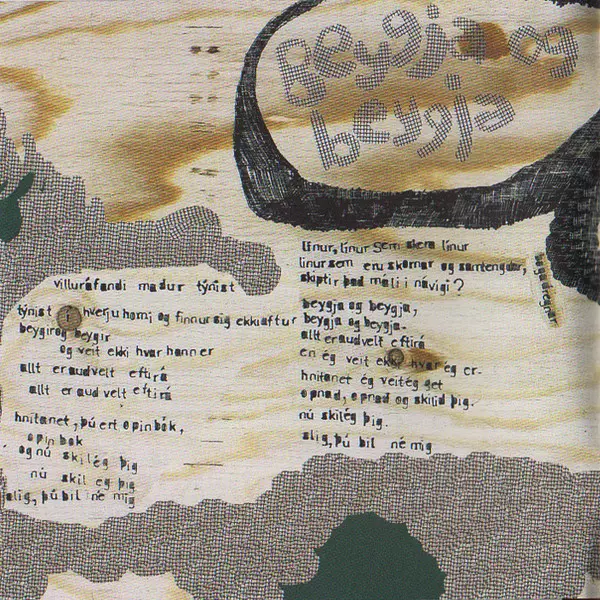 Beygja og
beygja
villuráfandi maður týnist
týnist í hverju horni og finnur sig ekki aftur
beygir og beygir
og veit ekki hvar hann er
allt er auðvelt eftirá
allt er auðvelt eftirá
hnitanet, þú ert opin bók,
opin bók
og nú skil ég þig
nú skil eg þig
slig, þú bil né mig
línur, línur sem skera línur
línur sem eru skornar og samtengdar,
skiptir það máli í návígi?
beygja og beygja,
beygja og beygja.
allt er auðvelt eftirá
en ég veit ekki hvar ég er-
hnitanet ég veit ég get
opnað, opnað og skilið þig.
nú skil ég þig.
slig, þú bil né mig